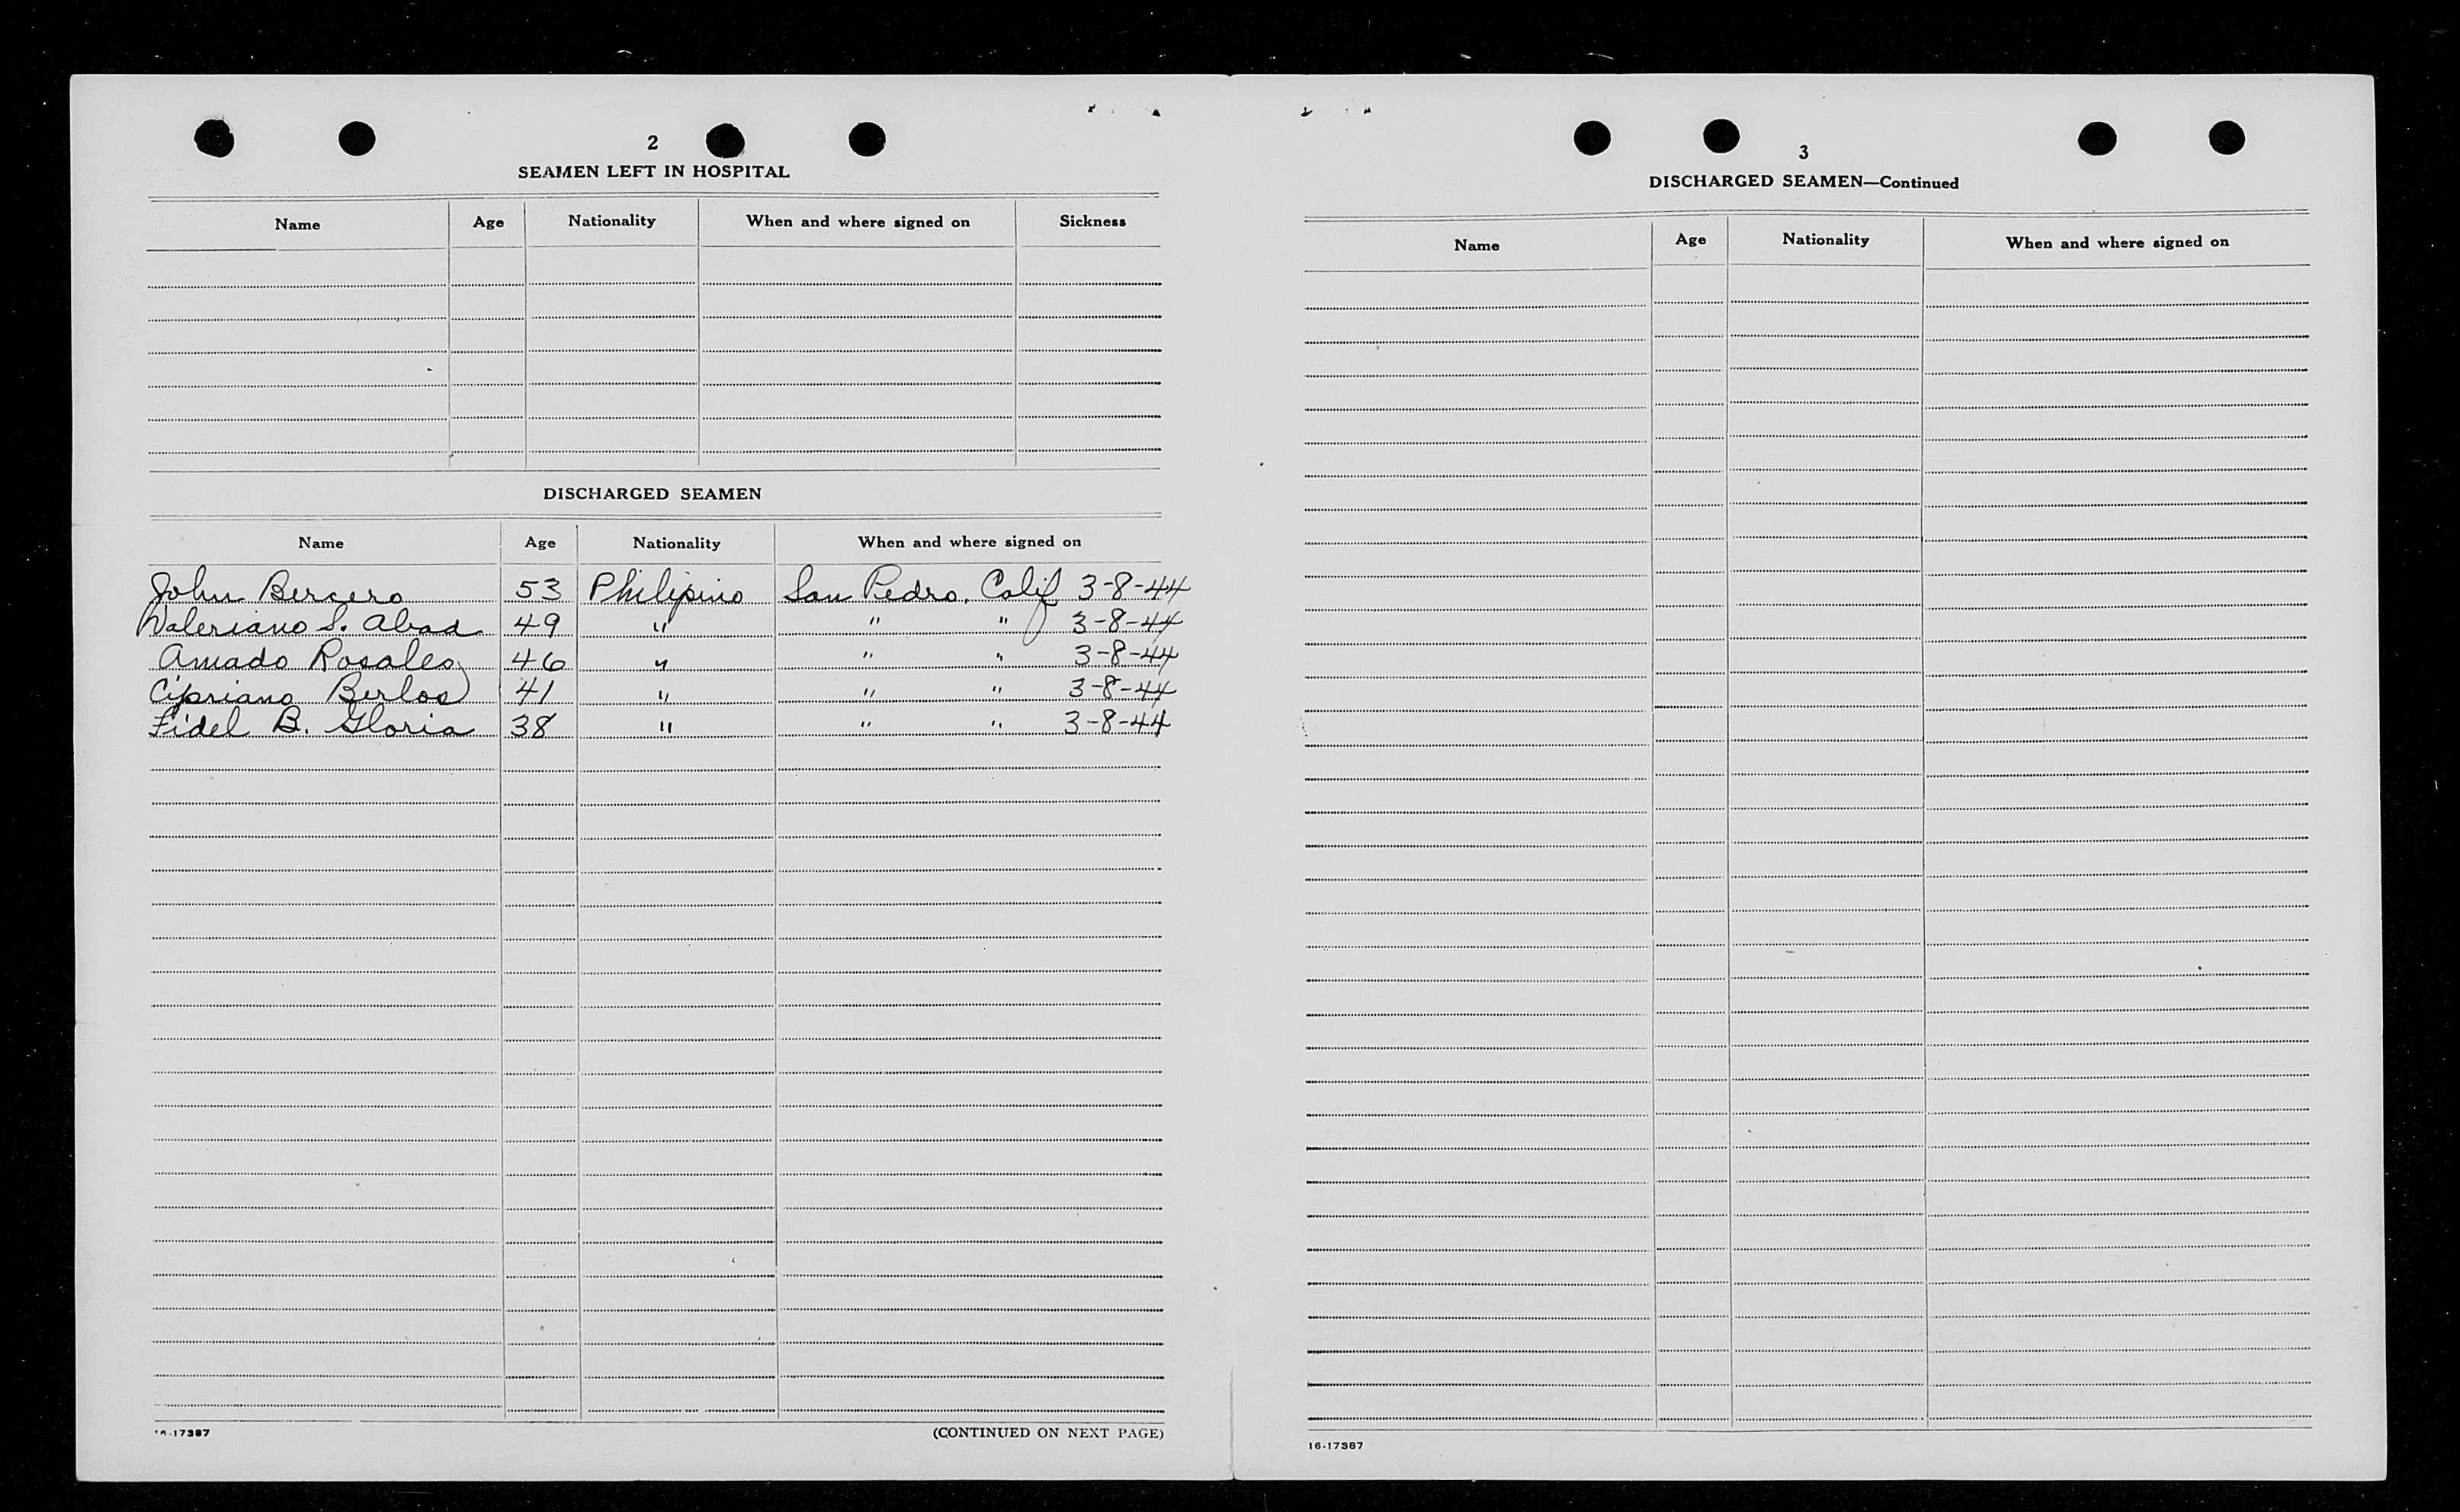 2
SEAMEN LEFT IN HOSPITAL
Name Age Nationality When and where signed on Sickness
DISCHARGED SEAMEN
Name Age Nationality When and where signed on
John Bercero 53 Philipino San Pedro, Calif 3-8-44
Valeriano S. Abad 49 " " " 3-8-44
Amado Rosales 46 " " " 3-8-44
Cipriano Berlos 41 " " " 3-8-44
Fidel B. Gloria 38 " " " 3-8-44
16-17387 (CONTINUED ON NEXT PAGE)
3
DISCHARGED SEAMEN—Continued
Name Age Nationality When and where signed on
16-17387